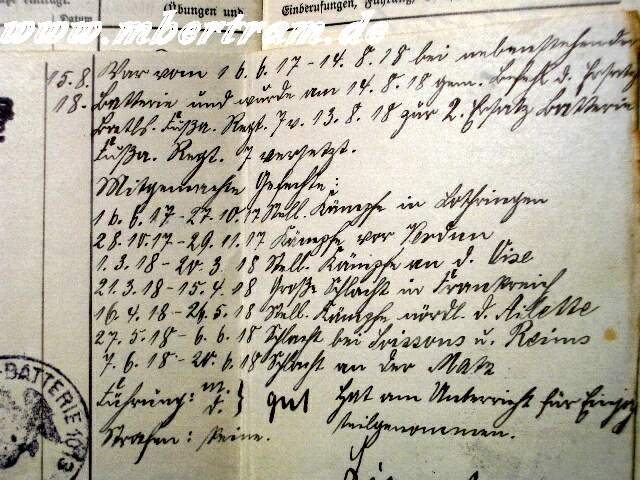 Übungen und
Einberufungen, Führung,
Datum
www.mbertram.de
15.8.
18.
War vom 16.6.17-14.8.18 bei nebenstehender
Batterie und wurde am 14.8.18 gem. Befehl d. Ersatz
Batls. Fußa. Regt. 7 v. 13.8.18 zur 2. Ersatz Batterie
Fußa. Regt. 7 versetzt.
Mitgemachte Gefechte:
16.6.17-27.10.17 Stell. Kämpfe in Lothringen
28.10.17-29.11.17 Kämpfe vor Verdun
1.3.18-20.3.18 Stell. Kämpfe an d. Oise
21.3.18-15.4.18 Große Schlacht in Frankreich
16.4.18-26.5.18 Stell. Kämpfe nördl. d. Ailette
27.5.18-6.6.18 Schlacht bei Soissons u. Reims
7.6.18-20.6.18 Schlacht an der Matz
Führung: m. d. } gut Hat am Unterricht für Einj.
teilgenommen.
Strafen: Keine.
-BATTERIE 1013